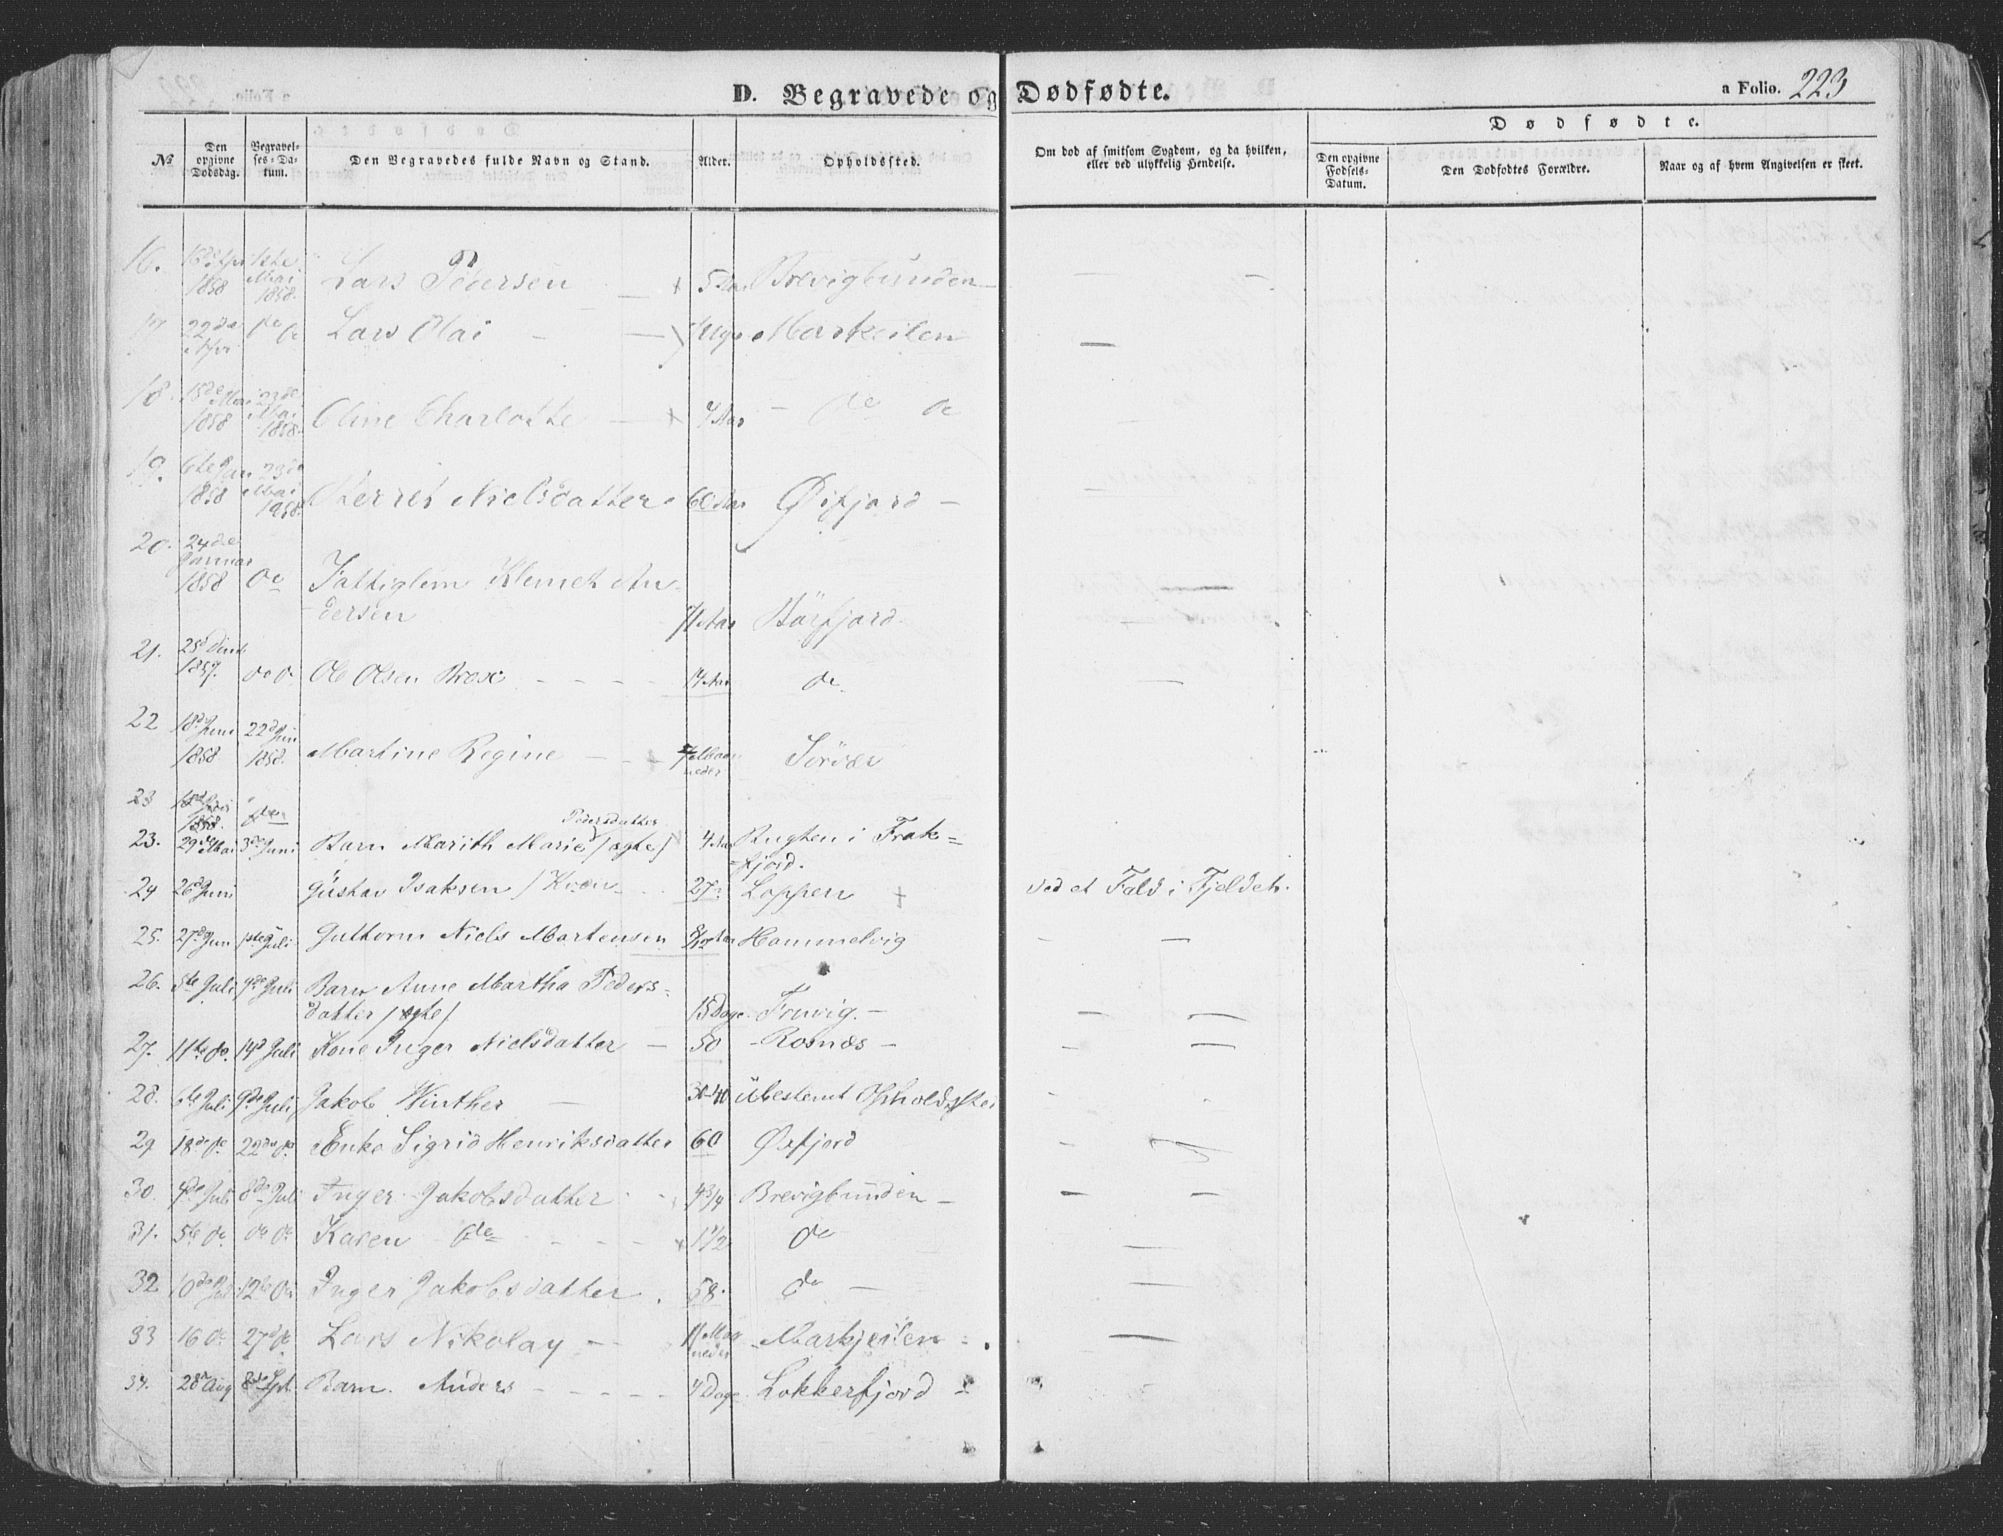 D. Begravede og Dødfødte.
a Folio. 223
No
Den opgivne Dødsdag.
Begravelses-Datum.
Den Begravedes fulde Navn og Stand.
Alder.
Opholdssted.
Om død af smitsom Sygdom, og da hvilken, eller ved ulykkelig Hendelse.
Dødfødte.
Den opgivne Fødsels-Datum.
Den Dødfødtes Forældre.
Naar og af hvem Angivelsen er skeet.
16. 1858 1ste Mai 1858. Lars Pedersen 5 Aar Brevigbunden
17 22de Apr do do Lars Olai Markeilen
18. 15de Mai 1858 23de Mai 1858. Oline Charlotte 7 Aar do do
19. 6te Jan 1858 23de Mai 1858. Nielsdatter 60 Aar Øxfjord
20. 24de Januar 1858 do Fattiglem Klemet An-
dersen 71 Aar Börfjord
21. 1857. do do Ole Olsen 14 Aar do
22 18de Juni 1858 22de Juni 1858. Martine Regine 7 Maa-
neder Sörvær
23 18de Juni 1858. do
23. 29de Mai 3de Juni Barn Marith Marie Pedersdatter /ægte/ 4 Aar Bugten i Frak-
fjord.
24 26de Juni Gustav Isaksen / Kvæn 27 Loppen Ved et Fald i Fjeldet.
25. 27de Jun 1ste Juli Guttorm Niels Mortensen 8/12 Aar Hammelvig
26. 5te Juli 9de Juli Barn Anne Martha Peders-
datter /ægte/ 15 Dage Fruvig.
27. 11te do. 14de Juli Kone Inger Nielsdatter 50 Rosnæs
28. 6te Juli 9de Juli Jakob Winther 30-40 Ubestemt Opholdssted
29 18de do 22de do Enke Sigrid Henriksdatter 60 Øxfjord
30. 4de Juli 8de Juli Inger Jakobsdatter 4 3/4 Brevigbunden
31. 5te do do do Karen do 1 1/2 do
32 10de Juli 12te do Inger Jakobsdatter 58. do
33 16 do 27de do Lars Nikolay 11 Maa-
neder Markjeilen
34. 28de Aug 8de Spt. Barn. Anders 4 Dage Lokkerfjord